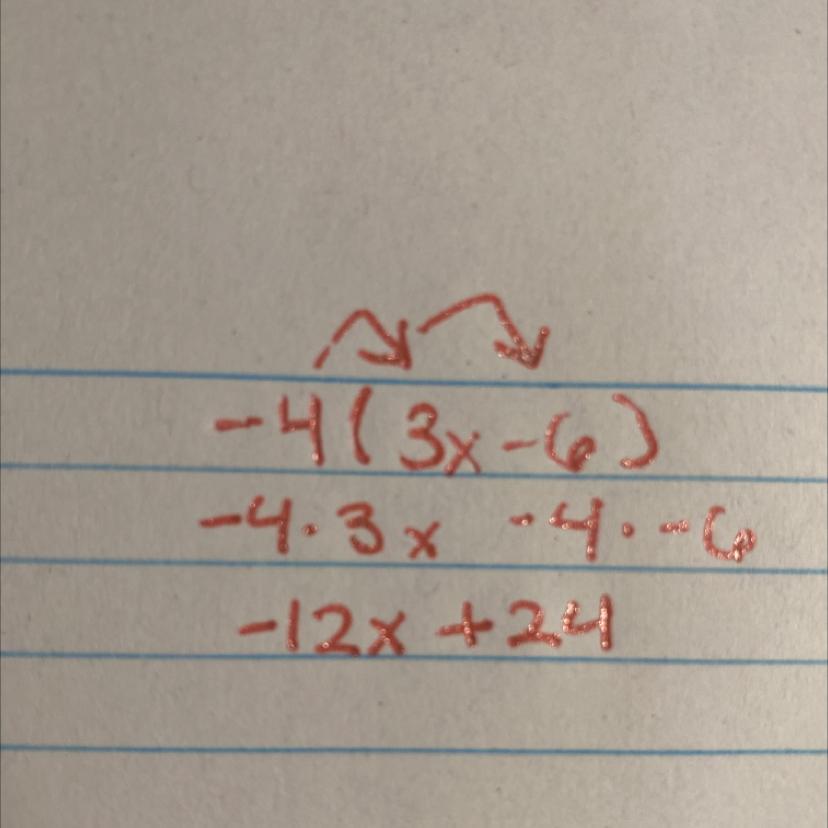 -4(3x-6)
-4·3x -4·-6
-12x+24